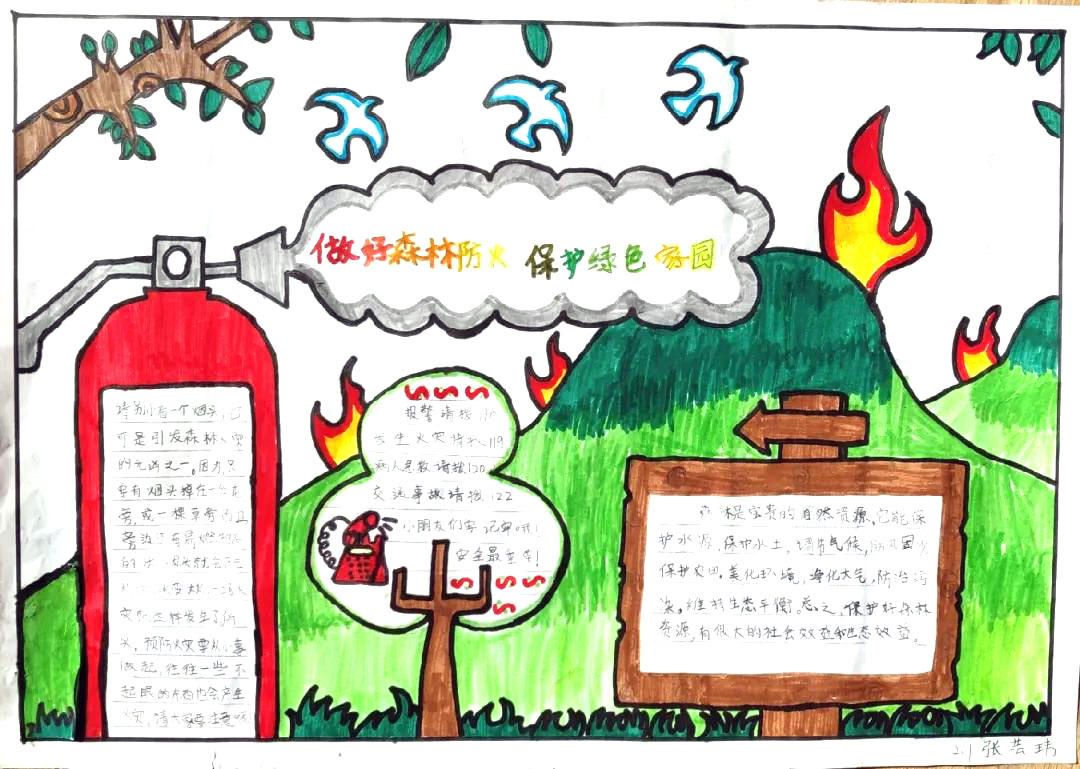 做好森林防火 保护绿色家园
请别小看一个烟头,它
可是引发森林火灾
的元凶之一。因为只
要有烟头掉在一个花
旁,或一棵草旁而且
旁边还有易燃物
灾就这样发生了所
以,预防火灾要从小事
做起,往往一些不
起眼的东西也会产生
火灾,请大家要注意哦
报警请拨110
发生火灾请拨119
病人急救请拨120
交通事故请拨122
小朋友们要记牢哦!
安全最重要!
森林是宝贵的自然资源,它能保
护水源,保护水土,调节气候,防风固沙
保护农田,美化环境,净化大气,防治污
染,维护生态平衡。总之,保护好森林
资源,有很大的社会效益和生态效益。
2.1 张芸玮